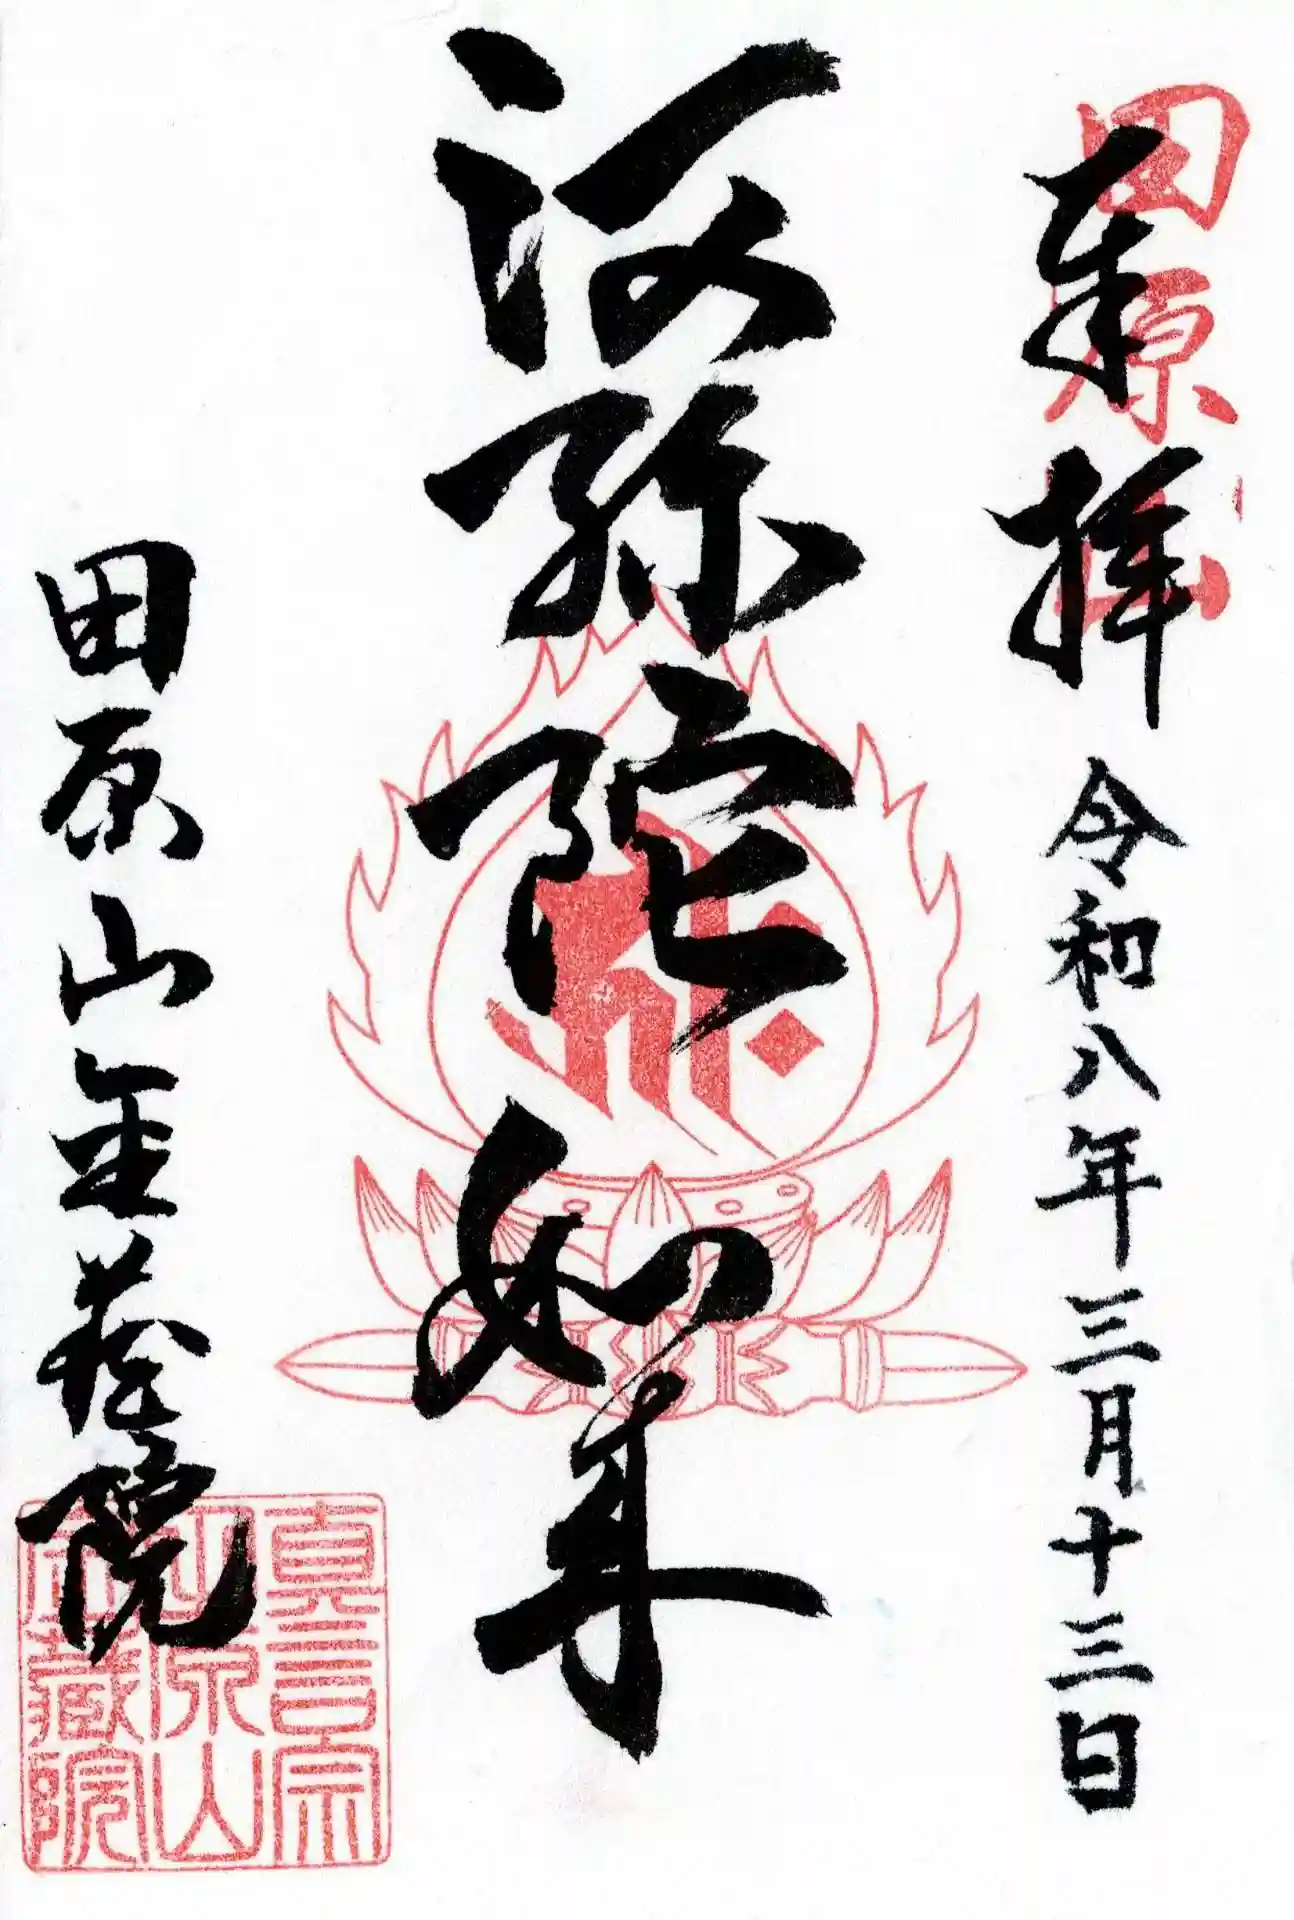 田原山
奉拝 令和八年三月十三日
阿弥陀如来
田原山金蔵院
真言宗
田原山
金蔵院